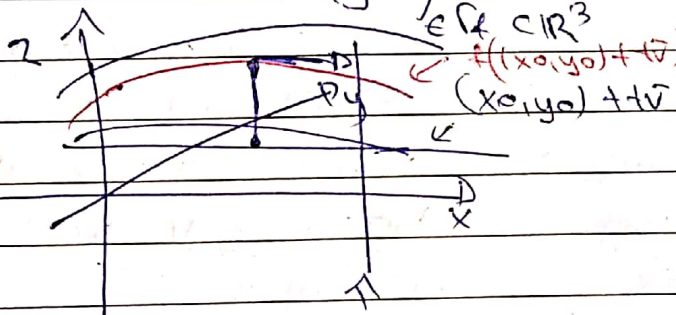 ∈ Γf ⊂ ℝ³
z
f((x0,y0)+t v̄
(x0,y0)+t v̄
y
x
π